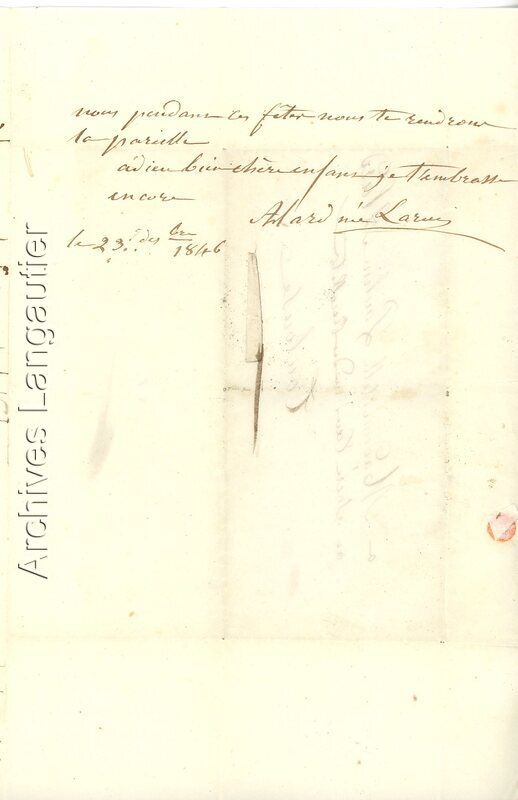 nous pendant ces fêtes nous te rendrons
la pareille
adieu bien chère enfant je t'embrasse
encore
Alard née Larue
le 23. des bre 1846
Archives Langautier